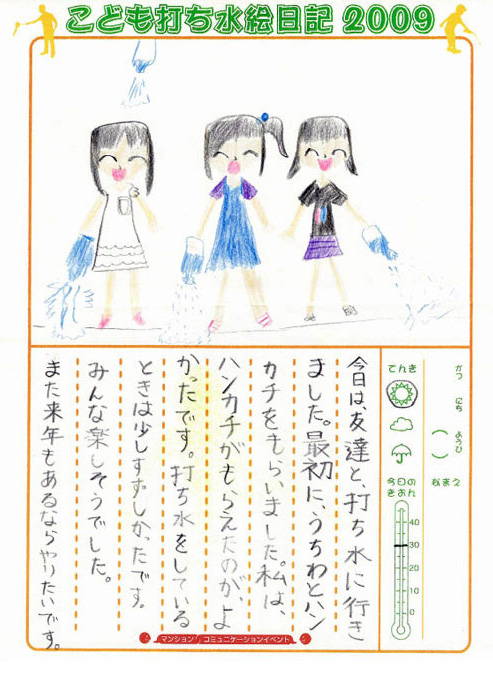 こども打ち水絵日記 2009
がつ にち ようび
( )
なまえ
てんき
今日の
きおん
40
30
20
10
0
今日は、友達と、打ち水に行き
ました。最初に、うちわとハン
カチをもらいました。私は、
ハンカチがもらえたのが、よ
かったです。打ち水をしている
ときは少しすずしかったです。
みんな楽しそうでした。
また来年もあるならやりたいです。
マンション コミュニケーションイベント